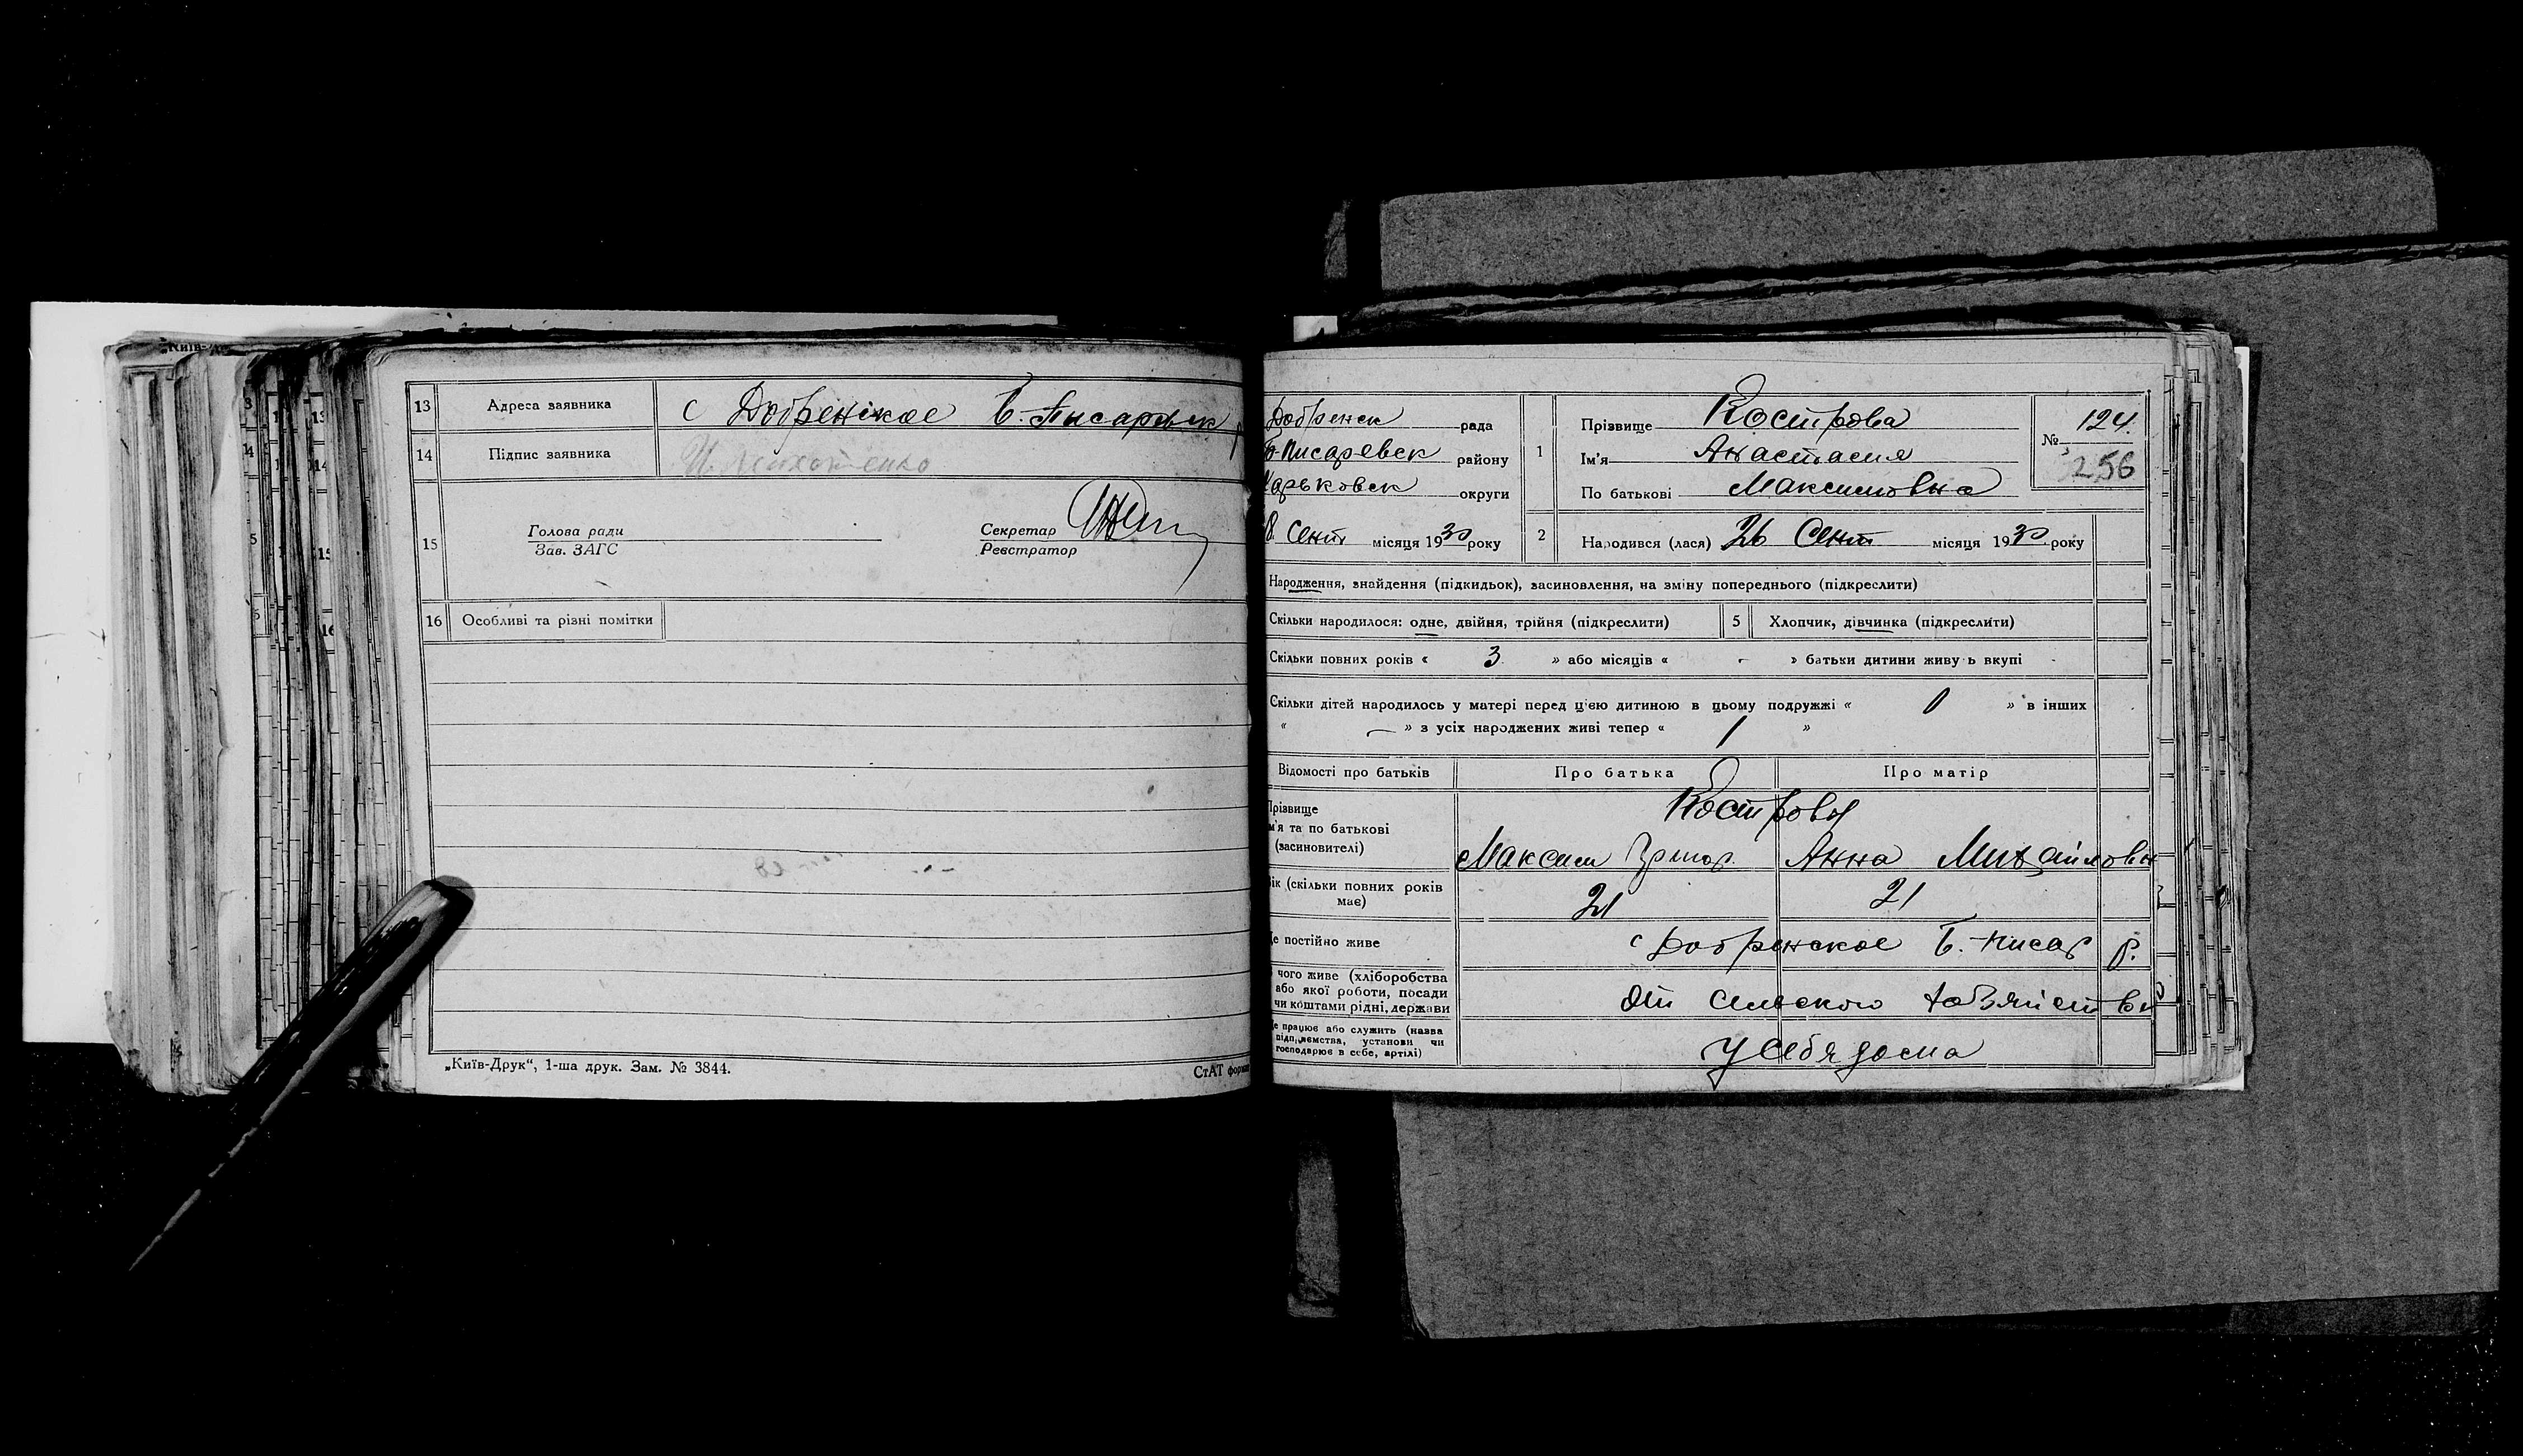 13 Адреса заявника с Добренское Б.-Писаревск
14 Підпис заявника
15 Голова ради Секретар
Зав. ЗАГС Реєстратор
16 Особливі та різні помітки
„Київ-Друк“, 1-ша друк. Зам. № 3844.
СтАТ форма
Добренск рада
Б-Писаревск району
Харьковск округи
8 Сент місяця 1930 року
1 Прізвище Кострова
Ім'я Анастасия
По батькові Максимовна
№ 124.
256
2 Народився (лася) 26 Сент місяця 1930 року
Народження, знайдення (підкидьок), засиновлення, на зміну попереднього (підкреслити)
Скільки народилося: одне, двійня, трійня (підкреслити) 5 Хлопчик, дівчинка (підкреслити)
Скільки повних років « 3 » або місяців « - » батьки дитини живуть вкупі
Скільки дітей народилось у матері перед цією дитиною в цьому подружжі « 1 » в інших
« — » з усіх народжених живі тепер « 1 »
Відомості про батьків Про батька Про матір
Прізвище Костровы
ім'я та по батькові
(засиновителі) Максим Григор. Анна Михайловн
Вік (скільки повних років має) 21 21
Де постійно живе с Добренское Б.-Писар р.
З чого живе (хліборобства
або якої роботи, посади
чи коштами рідні, держави От Сельского хозяйства
Де працює або служить (назва
підприємства, установи чи
господарює в себе, артілі) У себя дома